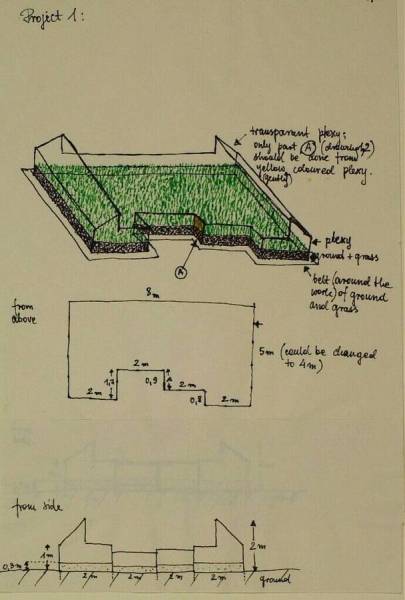 Project 1:
transparent plexy;
only part A (drawing 2)
should be done from
yellow coloured plexy.
A
plexy
ground + grass
belt (around the
work) of ground
and grass
from
above
8m
5m (could be changed
to 4m)
2m
1,7
0,9
2m
2m
0,8
2m
from side
2m
1m
0,3m
2m
2m
2m
2m
ground